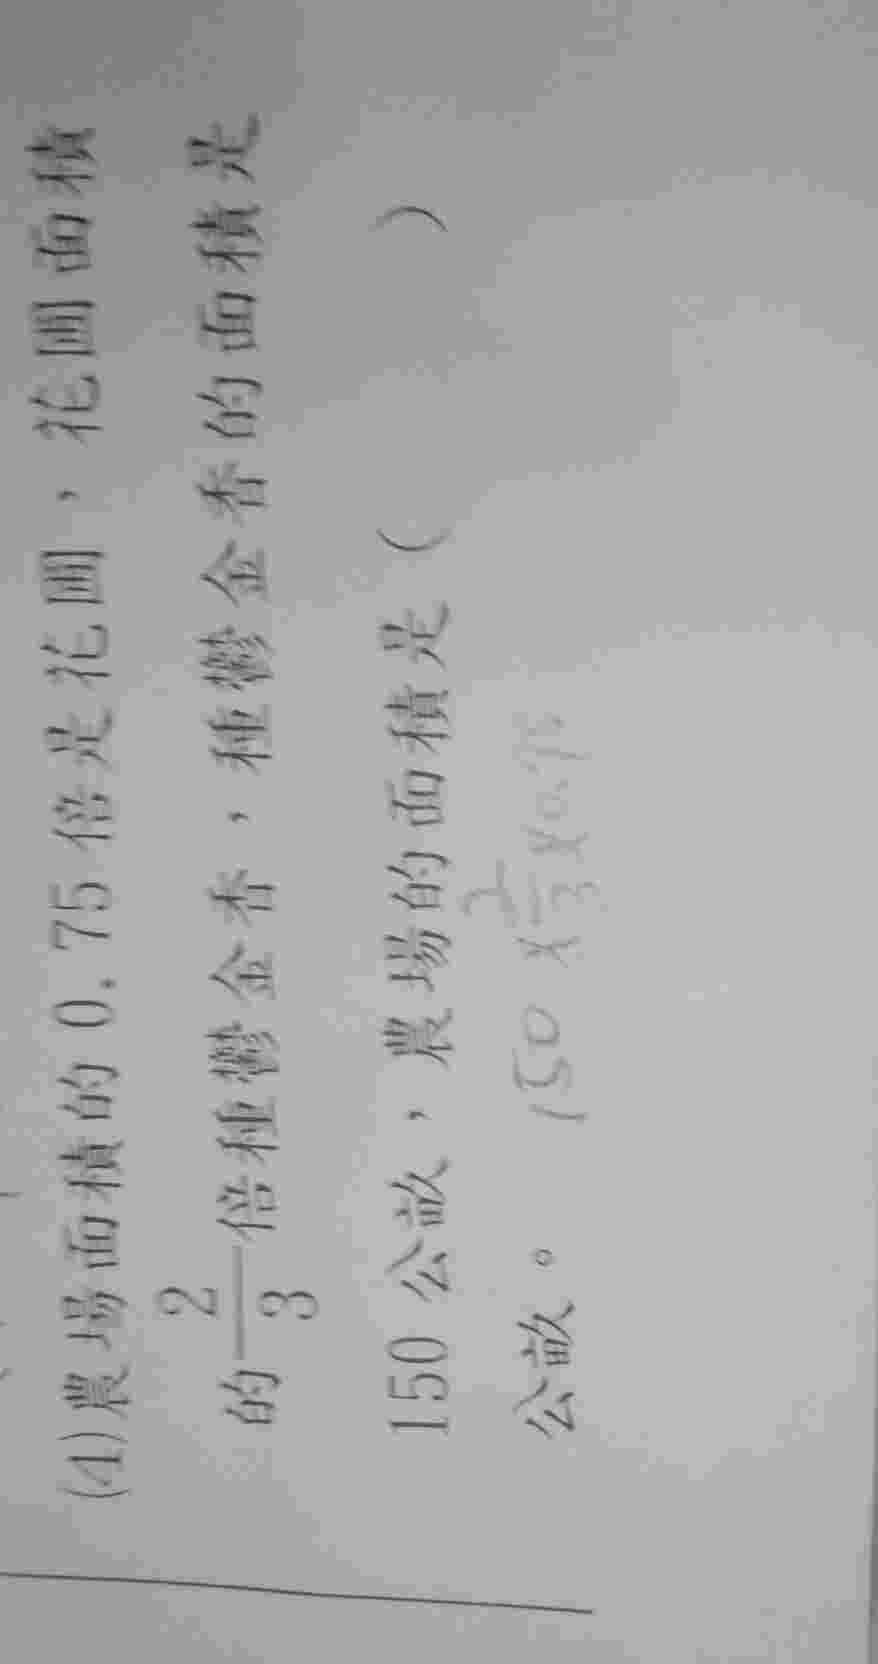 (4)農場面積的0.75倍是花圃，花圃面積
的2/3倍種鬱金香，種鬱金香的面積是
150公畝，農場的面積是(　　　　)
公畝。 150×2/3×0.75